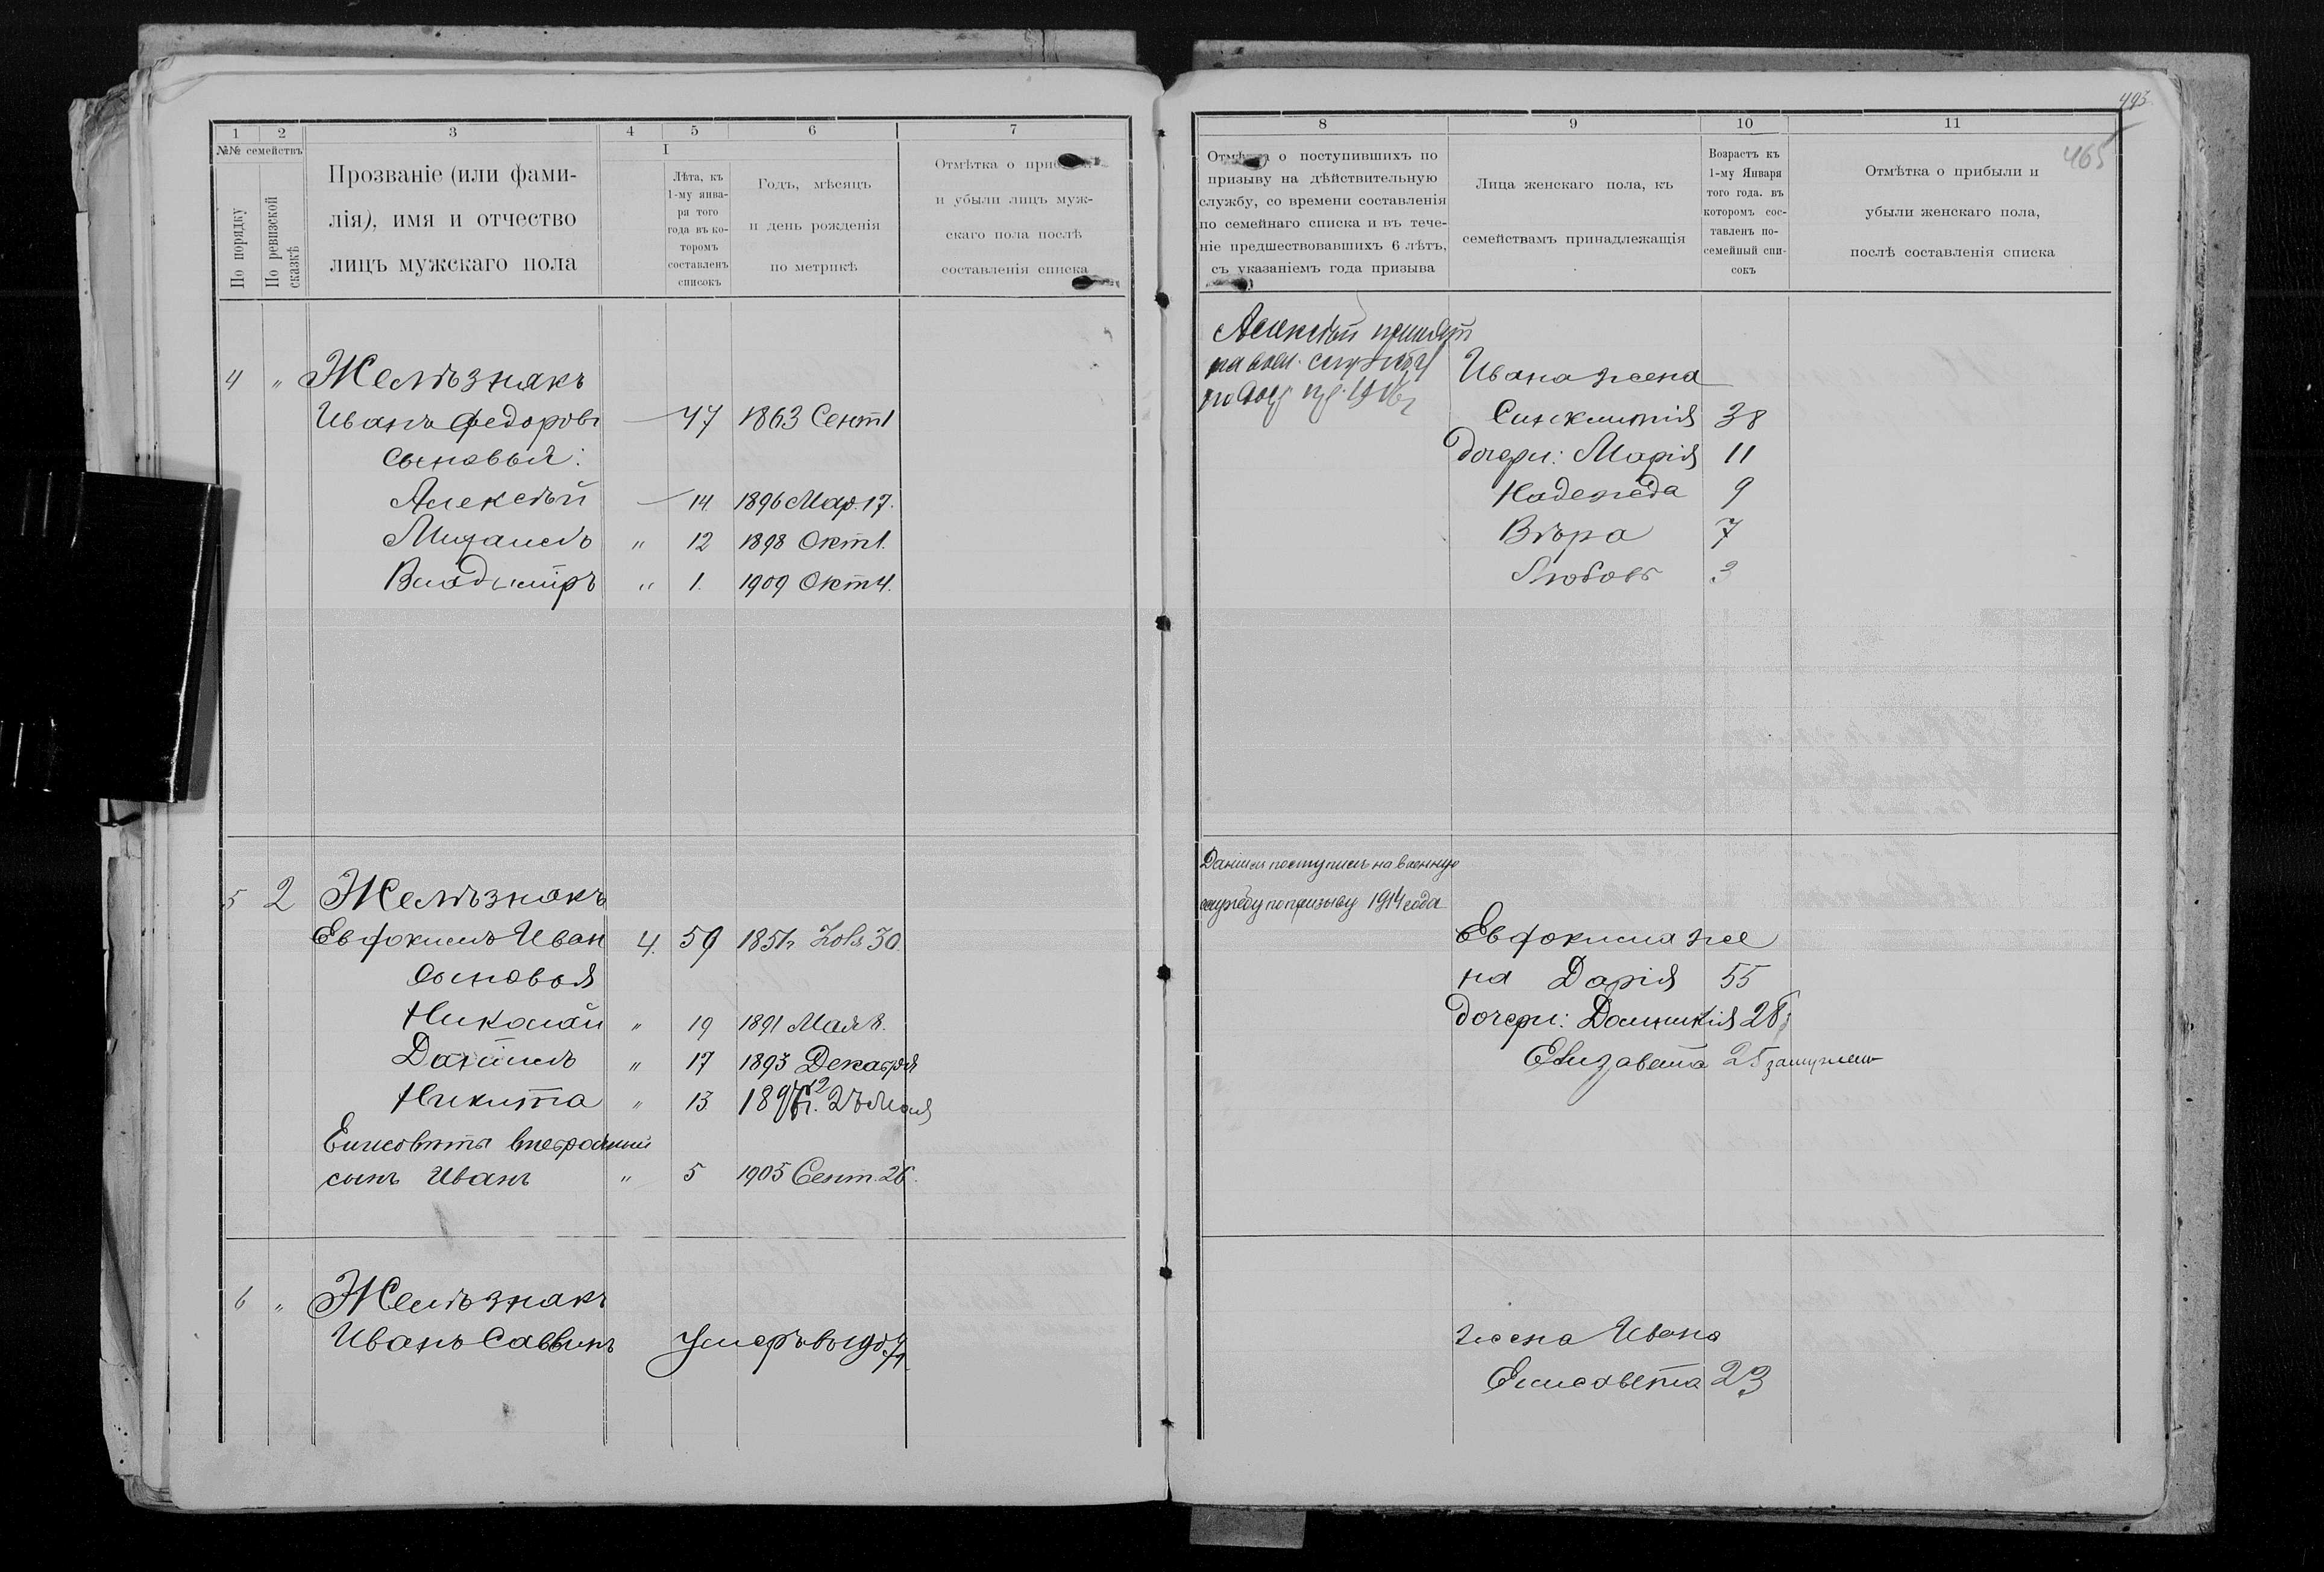 1 2 3 4 5 6 7
№№ семействъ
По порядку
По ревизской сказкѣ
Прозваніе (или фами-
лія), имя и отчество
лицъ мужскаго пола
I
Лѣта, къ
1-му янва-
ря того
года въ ко-
торомъ
составленъ
списокъ
Годъ, мѣсяцъ
и день рожденія
по метрикѣ
Отмѣтка о
и убыли лицъ муж-
скаго пола послѣ
составленія списка
4 " Желѣзнякъ
Иванъ Федоровъ 47 1863 Сент 1
сыновья:
Алексѣй 14 1896 Мар. 17.
Михаилъ " 12 1898 Окт 1.
Владиміръ " 1. 1909 Окт 4.
5 2 Желѣзнякъ
Евфокимъ Иван 4. 59 1851г 30.
сыновья
Николай " 19 1891 Мая 8.
Даніилъ " 17 1893 Декабря
Никита " 13 2 Мая
Елисаветы внебрачный
сынъ Иванъ " 5 1905 Сент. 26.
6 " Желѣзнякъ
Иванъ Саввинъ Умеръ въ
493
465
8 9 10 11
Отмѣтка о поступившихъ по
призыву на дѣйствительную
службу, со времени составленія
по семейнаго списка и въ тече-
ніе предшествовавшихъ 6 лѣтъ,
съ указаніемъ года призыва
Лица женскаго пола, къ
семействамъ принадлежащія
Возрастъ къ
1-му Января
того года. въ
которомъ сос-
тавленъ по-
семейный спи-
сокъ
Отмѣтка о прибыли и
убыли женскаго пола,
послѣ составленія списка
Алексѣй принятъ
на воен. службу
по
Ивана жена
Синклитія 38
дочери: Марія 11
Надежда 9
Вѣра 7
Любовь 3
Даніилъ поступилъ на военную
службу по призыву 1914 года
Евфокима же
на Дарія 55
дочери: Домникія 28
Елизавета 25 замужем
жена Ивана
Елисавета 23